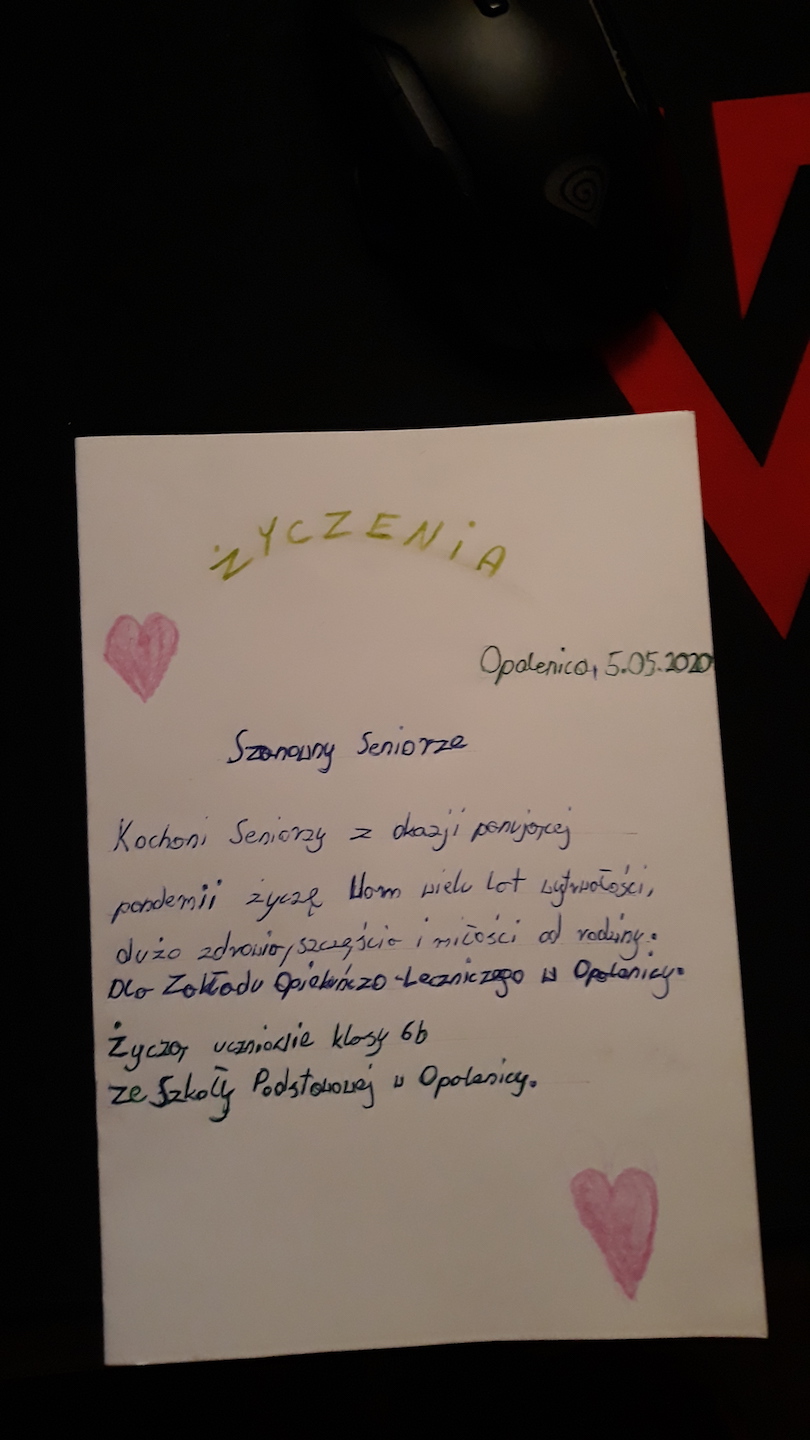 ŻYCZENIA
Opalenica, 5.05.2020
Szanowny Seniorze
Kochani Seniorzy z okazji panującej
pandemii życzę Wam wielu lat wytrwałości,
dużo zdrowia, szczęścia i miłości od rodziny.
Dla Zakładu Opiekńczo-Leczniczego w Opalenicy.
Życzą uczniowie klasy 6b
ze Szkoły Podstawowej w Opalenicy.